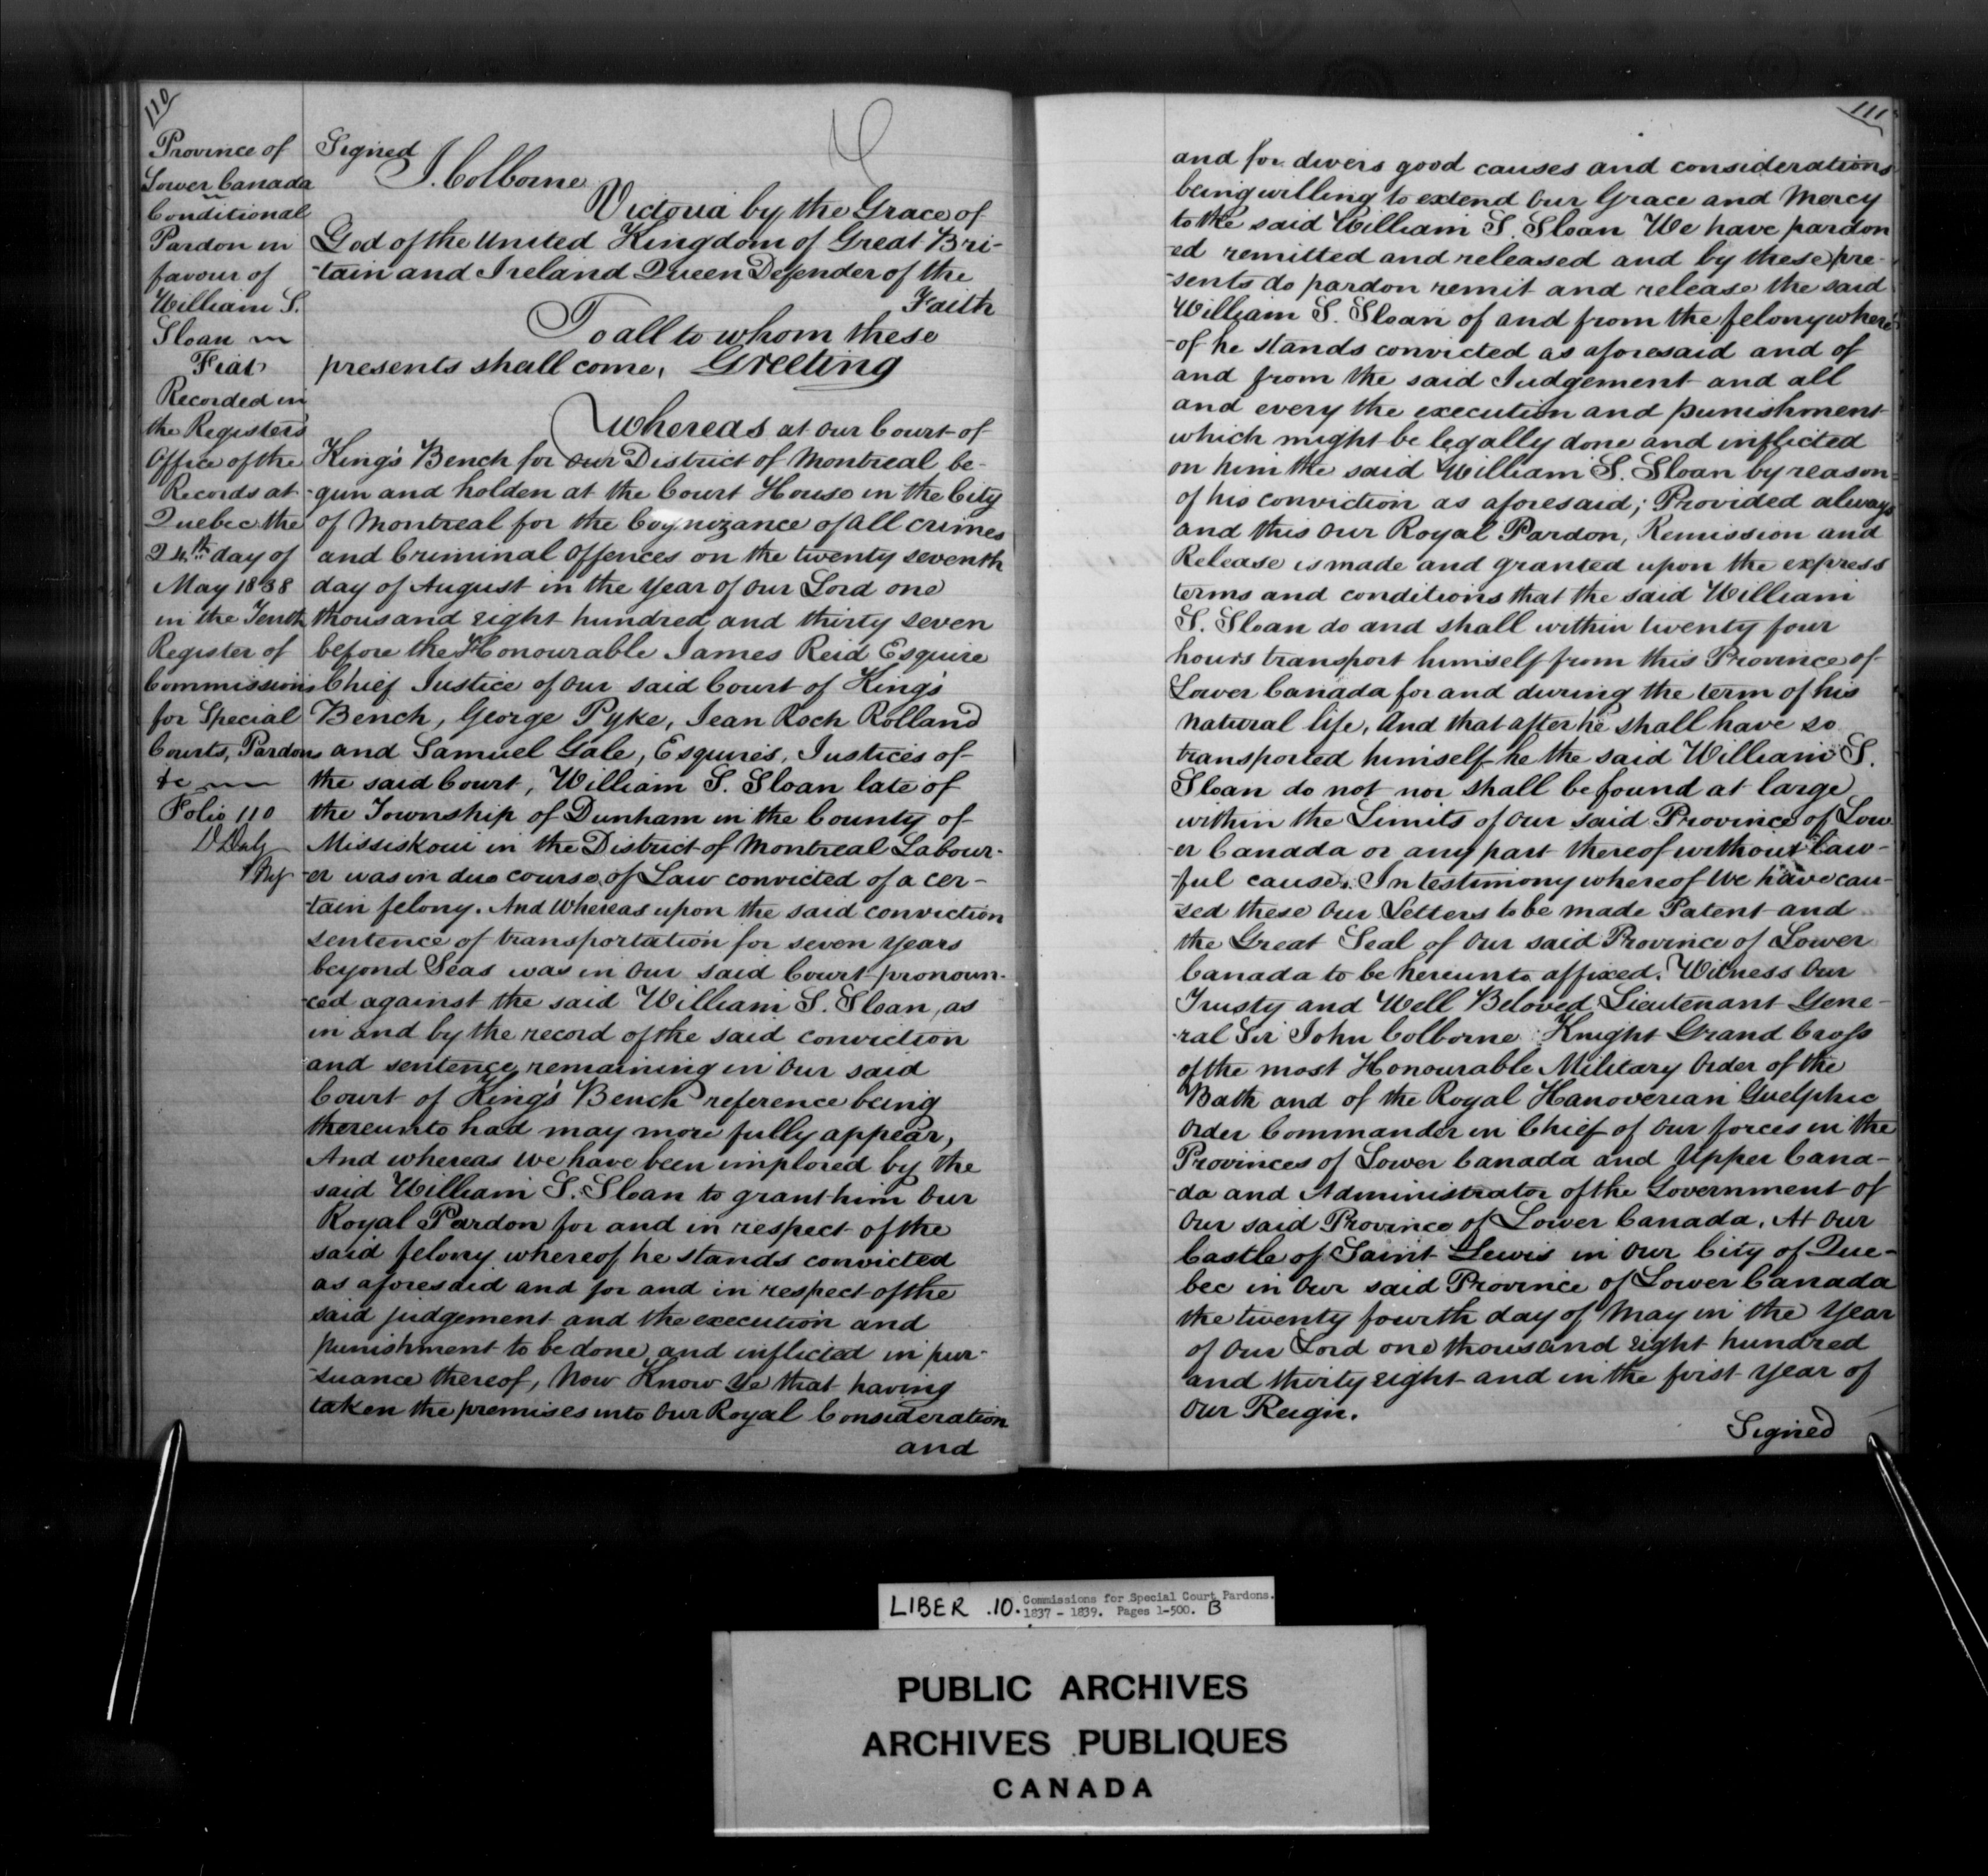 110
Province of
Lower Canada
Conditional
Pardon in
favour of
William S.
Sloan
Fiat
Recorded in
the Registers
Office of the
Records at
Quebec the
24th day of
May 1838
in the Tenth
Register of
Commissions
for Special
Courts, Pardons
&c
Folio 110
D Daly
Reg
Signed
J. Colborne
Victoria by the Grace of
God of the United Kingdom of Great Bri-
-tain and Ireland Queen Defender of the
Faith
To all to whom these
presents shall come, Greeting
Whereas at our Court of
King's Bench for our District of Montreal be-
-gun and holden at the Court House in the City
of Montreal for the Cognizance of all crimes
and Criminal Offences on the twenty seventh
day of August in the Year of our Lord one
thousand eight hundred and thirty seven
before the Honourable James Reid Esquire
Chief Justice of our said Court of King's
Bench, George Pyke, Jean Roch Rolland
and Samuel Gale, Esquires, Justices of
the said Court, William S. Sloan late of
the Township of Dunham in the County of
Missiskoui in the District of Montreal Labour-
-er was in due course of Law convicted of a cer-
-tain felony. And Whereas upon the said conviction
sentence of transportation for seven years
beyond Seas was in our said Court pronoun-
-ced against the said William S. Sloan, as
in and by the record of the said conviction
and sentence remaining in our said
Court of King's Bench reference being
thereunto had may more fully appear,
And whereas we have been implored by the
said William S. Sloan to grant him our
Royal Pardon for and in respect of the
said felony whereof he stands convicted
as aforesaid and for and in respect of the
said judgement and the execution and
punishment to be done and inflicted in pur-
-suance thereof, Now Know Ye that having
taken the premises into our Royal Consideration
and
111
and for divers good causes and considerations
being willing to extend our Grace and Mercy
to the said William S. Sloan We have pardon
-ed remitted and released and by these pre-
-sents do pardon remit and release the said
William S. Sloan of and from the felony where
-of he stands convicted as aforesaid and of
and from the said Judgement and all
and every the execution and punishment
which might be legally done and inflicted
on him the said William S. Sloan by reason
of his conviction as aforesaid; Provided always
and this our Royal Pardon, Remission and
Release is made and granted upon the express
terms and conditions that the said William
S. Sloan do and shall within twenty four
hours transport himself from this Province of
Lower Canada for and during the term of his
natural life, And that after he shall have so
transported himself he the said William S.
Sloan do not nor shall be found at large
within the Limits of our said Province of Low
-er Canada or any part thereof without Law-
-ful cause. In testimony whereof we have cau-
-sed these our Letters to be made Patent and
the Great Seal of our said Province of Lower
Canada to be hereunto affixed. Witness our
Trusty and Well Beloved Lieutenant Gene-
-ral Sir John Colborne Knight Grand Cross
of the most Honourable Military Order of the
Bath and of the Royal Hanoverian Guelphic
Order Commander in Chief of our forces in the
Provinces of Lower Canada and Upper Cana-
-da and Administrator of the Government of
our said Province of Lower Canada. At our
Castle of Saint Lewis in our City of Que-
bec in our said Province of Lower Canada
the twenty fourth day of May in the Year
of our Lord one thousand eight hundred
and thirty eight and in the first Year of
our Reign.
Signed
LIBER .10. Commissions for Special Court Pardons.
1837 - 1839. Pages 1-500. B
PUBLIC ARCHIVES
ARCHIVES PUBLIQUES
CANADA